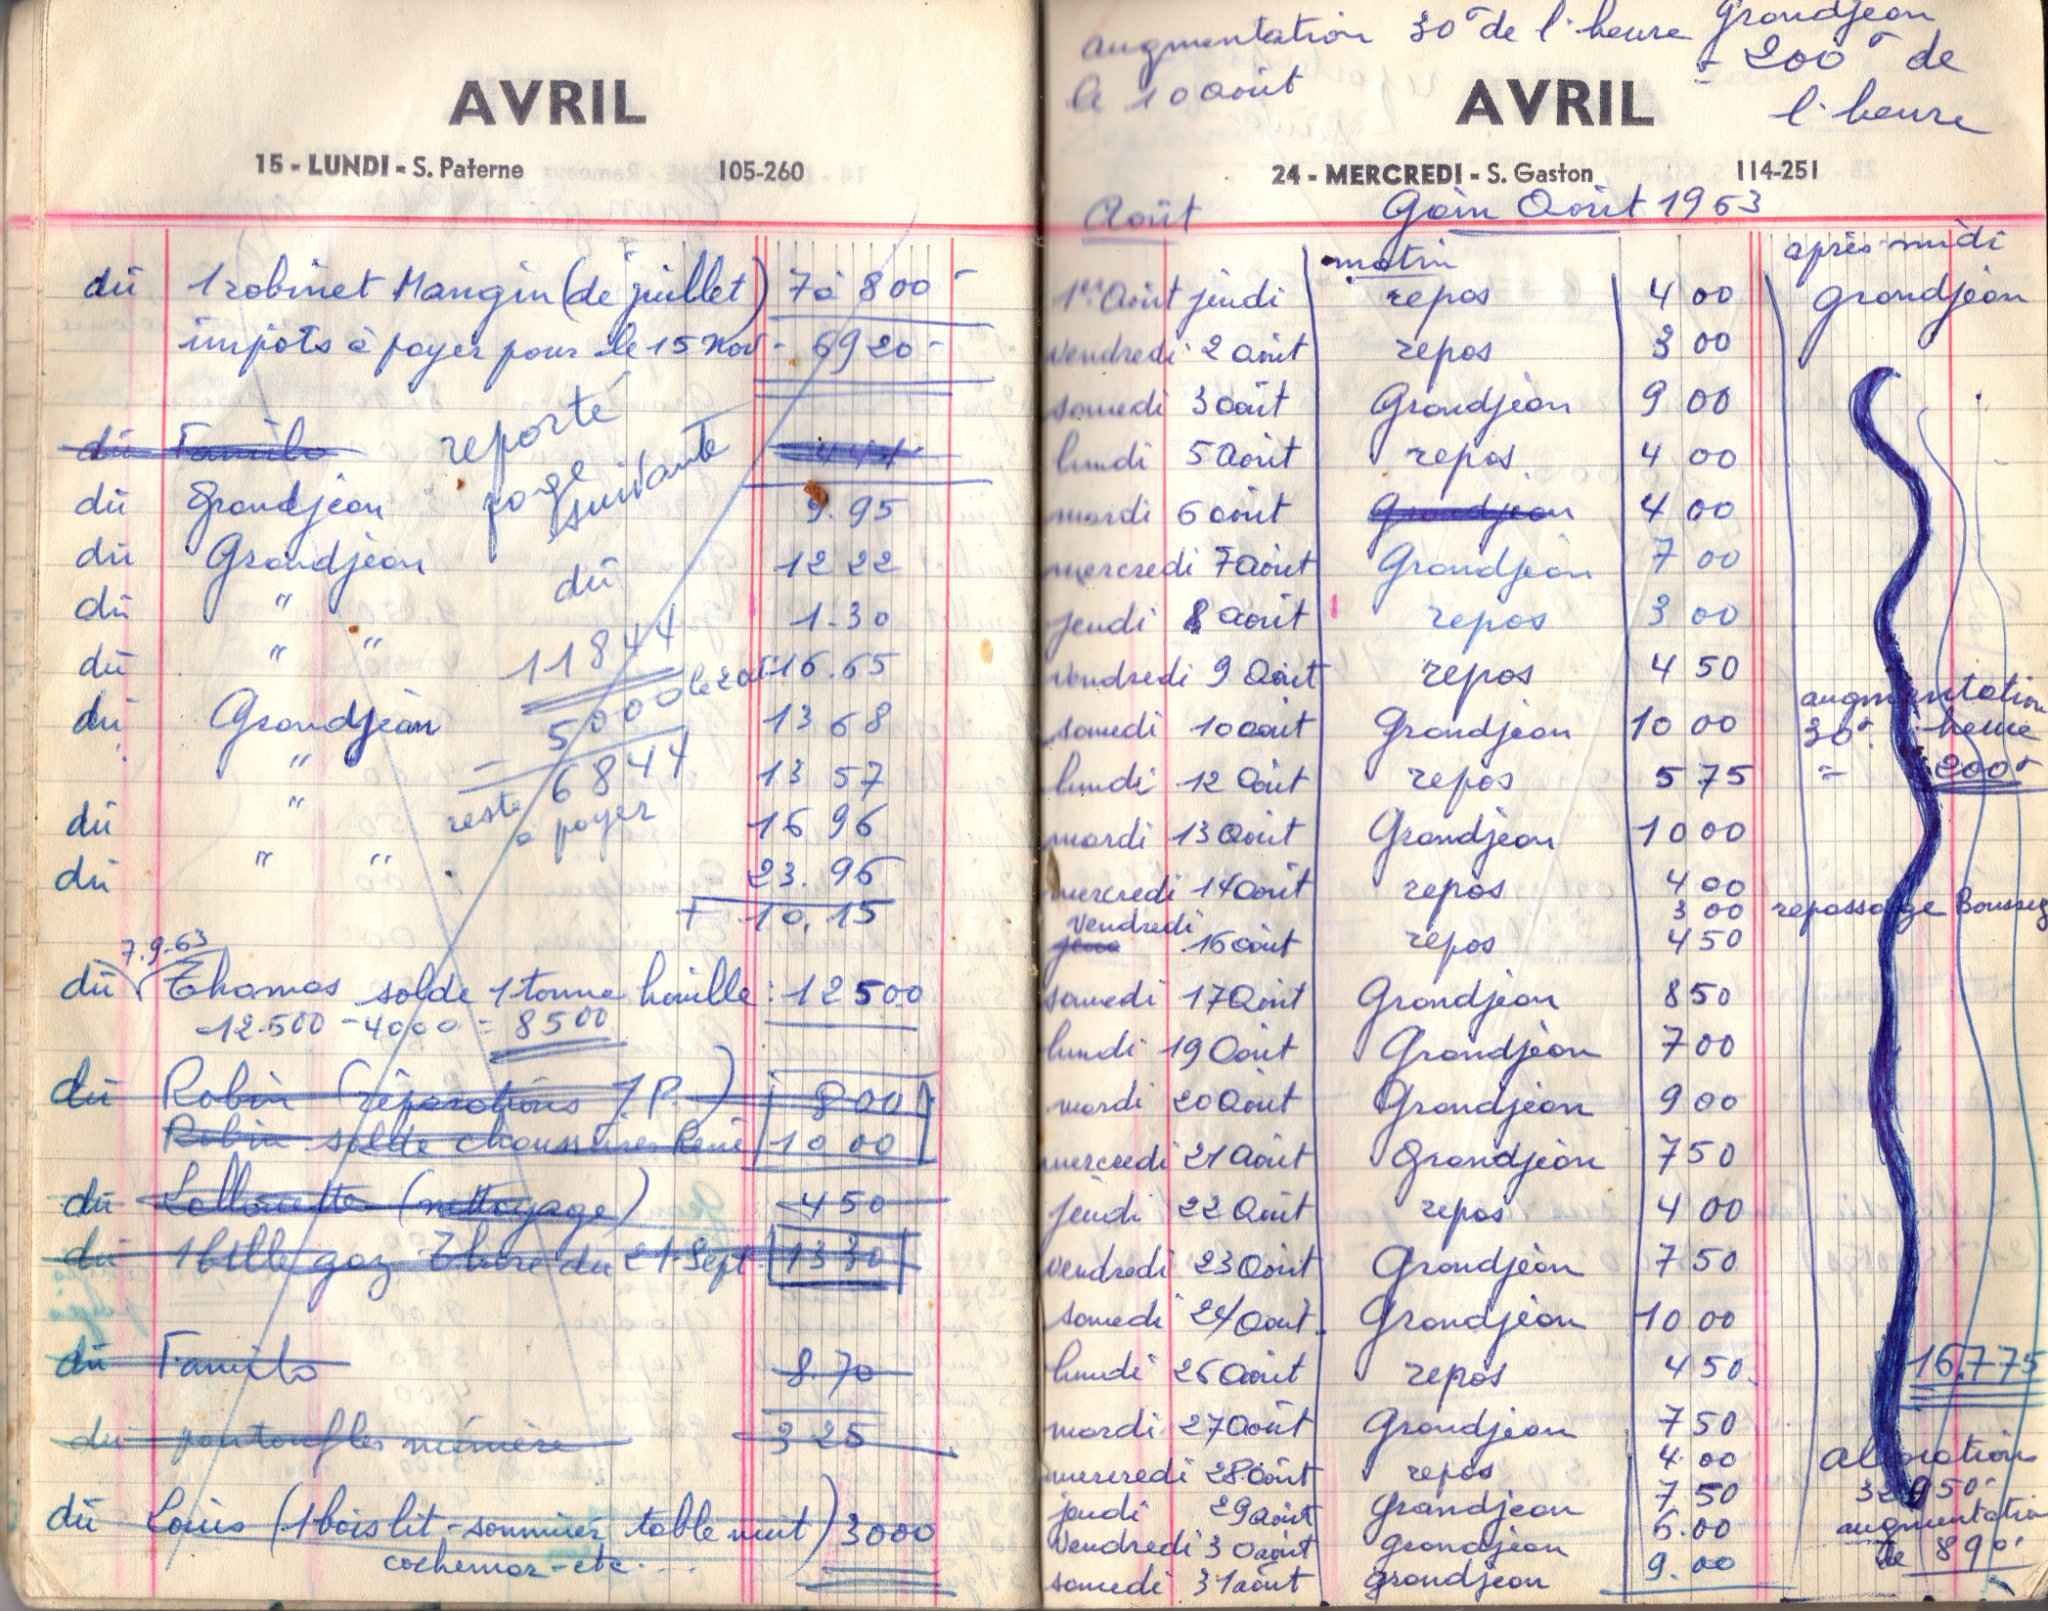 AVRIL
15 - LUNDI - S. Paterne 105-260
dû 1 robinet Mangin (de juillet) 7 à 800 -
impôts à payer pour le 15 Nov - 6920 -
dû Familo
reporté
page
suivante
dû Grandjean 9.95
dû Grandjean 12 22
dû " 1.30
dû " " 16.65
dû Grandjean 13 68
" 13 57
dû " 16 96
dû " " 23.96
+ 10.15
dû
11844
5000
- 6844
reste
à payer
7.9.63
dû Thomas solde 1 tonne houille : 12500
12.500 - 4000 = 8500
dû Robin (réparations J.P.) 800
Robin solde chaussures René 1000
dû Lallouette (nettoyage) 450
dû 1 btlle gaz du 21 Sept 1330
dû Familo 8.70
dû pantoufles mémère 325
dû Louis (1 bois lit - sommier table nuit) 3000
cochemar - etc.
augmentation 30 de l'heure Grandjean
le 10 août = 200 de
l'heure
AVRIL
24 - MERCREDI - S. Gaston 114-251
Août Gain Août 1963
matin après-midi
1er Août jeudi repos 4 00 Grandjean
vendredi 2 août repos 3 00
samedi 3 août Grandjean 9 00
lundi 5 août repos 4 00
mardi 6 août Grandjean 4 00
mercredi 7 août Grandjean 7 00
jeudi 8 août repos 3 00
vendredi 9 Août repos 4 50
samedi 10 août Grandjean 10 00
augmentation
30 heure
= 200
lundi 12 Août repos 5 75
mardi 13 Août Grandjean 10 00
mercredi 14 août repos 4 00
3 00 repassage
vendredi 16 août repos 4 50
samedi 17 Août Grandjean 8 50
lundi 19 Août Grandjean 7 00
mardi 20 Août Grandjean 9 00
mercredi 21 Août Grandjean 7 50
jeudi 22 Août repos 4 00
vendredi 23 Août Grandjean 7 50
samedi 24 Août Grandjean 10 00
lundi 26 août repos 4 50 16.775
mardi 27 Août Grandjean 7 50
mercredi 28 août repos 4 00
jeudi 29 août Grandjean 7 50
vendredi 30 août Grandjean 6.00
samedi 31 août Grandjean 9.00
augmentation
de 890